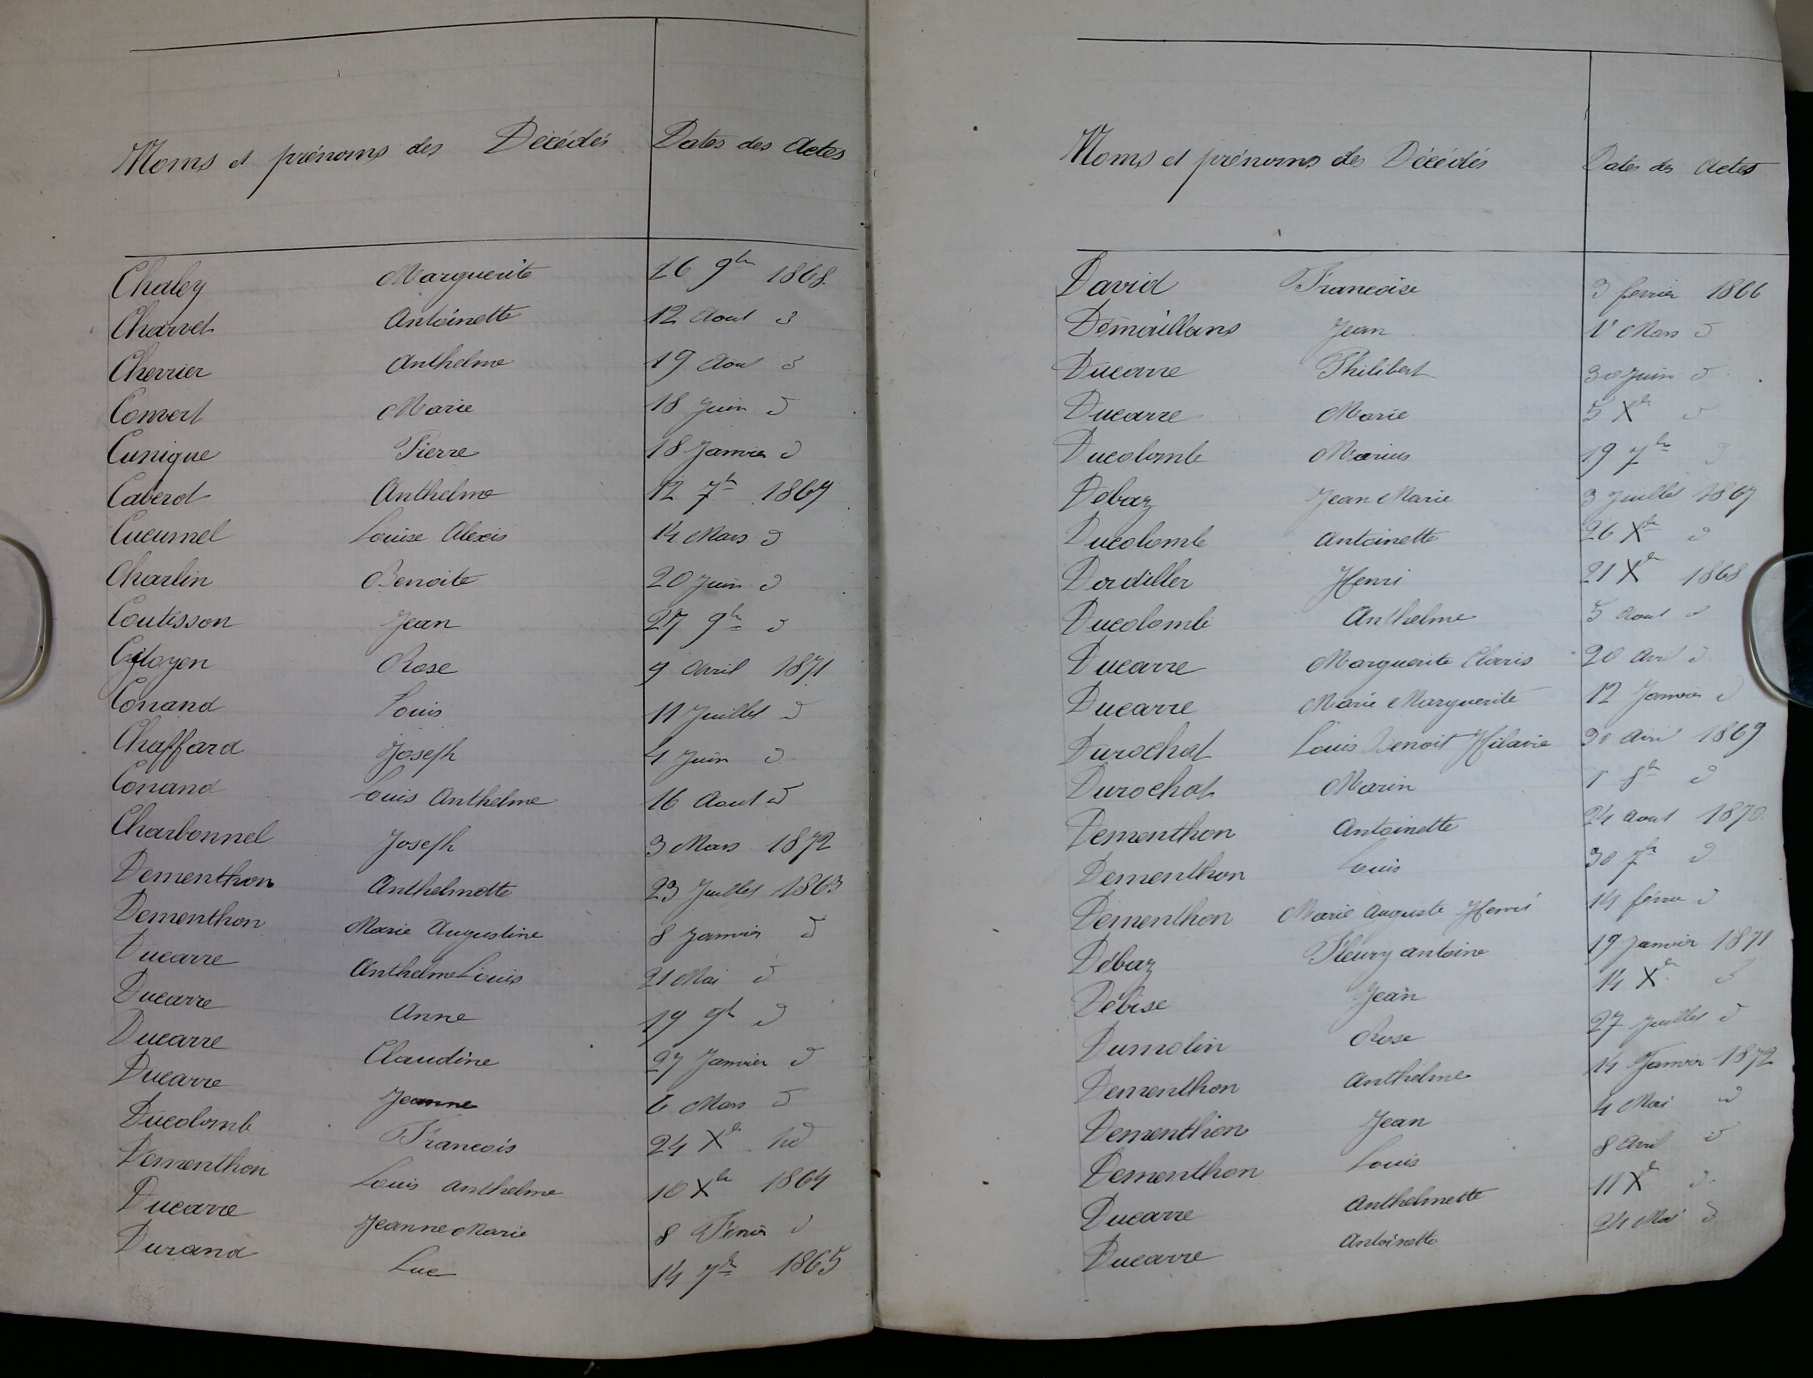 Noms et prénoms des Décédés Dates des Actes
Chaley Marguerite 26 9bre 1868
Charvet Antoinette 12 Aout d
Chevrier Anthelme 19 Aout d
Convert Marie 18 Juin d
Cunique Pierre 18 Janvier d
Caberd Anthelme 12 7bre 1869
Cucurnel Louise Alexis 14 Mars d
Charlin Benoite 20 Juin d
Coutisson Jean 27 9bre d
Citoyen Rose 9 Avril 1871
Conand Louis 11 Juillet d
Chaffard Joseph 4 Juin d
Conand Louis Anthelme 16 Aout d
Charbonnel Joseph 3 Mars 1872
Dementhon Anthelmette 23 Juillet 1863
Dementhon Marie Augustine 8 Janvier d
Ducarre Anthelme Louis 21 Mai d
Ducarre Anne 19 9bre d
Ducarre Claudine 27 Janvier d
Ducarre Jeanne 6 Mars d
Ducolomb Francois 24 Xbre d
Dementhon Louis Anthelme 10 Xbre 1864
Ducarre Jeanne Marie 8 d
Durand Luc 14 7bre 1865
Noms et prénoms des Décédés Dates des Actes
David Francoise 3 fevrier 1866
Demaillans Jean 1r Mars d
Ducarre Philibert 30 Juin d
Ducarre Marie 5 Xbre d
Ducolomb Marius 19 7bre d
Debaz Jean Marie 3 Juillet 1867
Ducolomb Antoinette 26 Xbre d
Dordiller Henri 21 Xbre 1868
Ducolomb Anthelme 5 Aout d
Ducarre Marguerite Claris 20 Avril d
Ducarre Marie Marguerite 12 Janvier d
Durochat Louis Benoit Hilarie 30 Avril 1869
Durochat Marin 1 8bre d
Dementhon Antoinette 24 Aout 1870
Dementhon Louis 30 7bre d
Dementhon Marie Auguste Henri 14 d
Débaz Fleury Antoine 19 Janvier 1871
Debise Jean 14 Xbre d
Dumolin Rose 27 Juillet d
Dementhon Anthelme 14 Janvier 1872
Dementhon Jean 4 Mai d
Dementhon Louis 8 Avril d
Ducarre Anthelmette 11 Xbre d
Ducarre Antoinette 24 Mai d